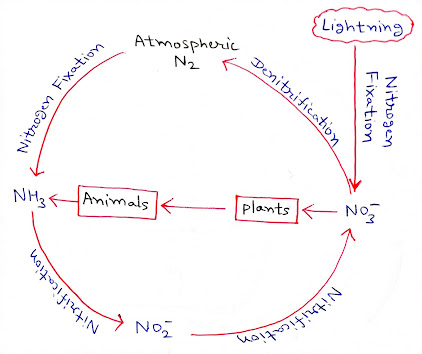 Lightning
Atmospheric
N2
Nitrogen Fixation
Denitrification
Nitrogen
Fixation
NH3
Animals
plants
NO3-
Nitrification
NO2-
Nitrification